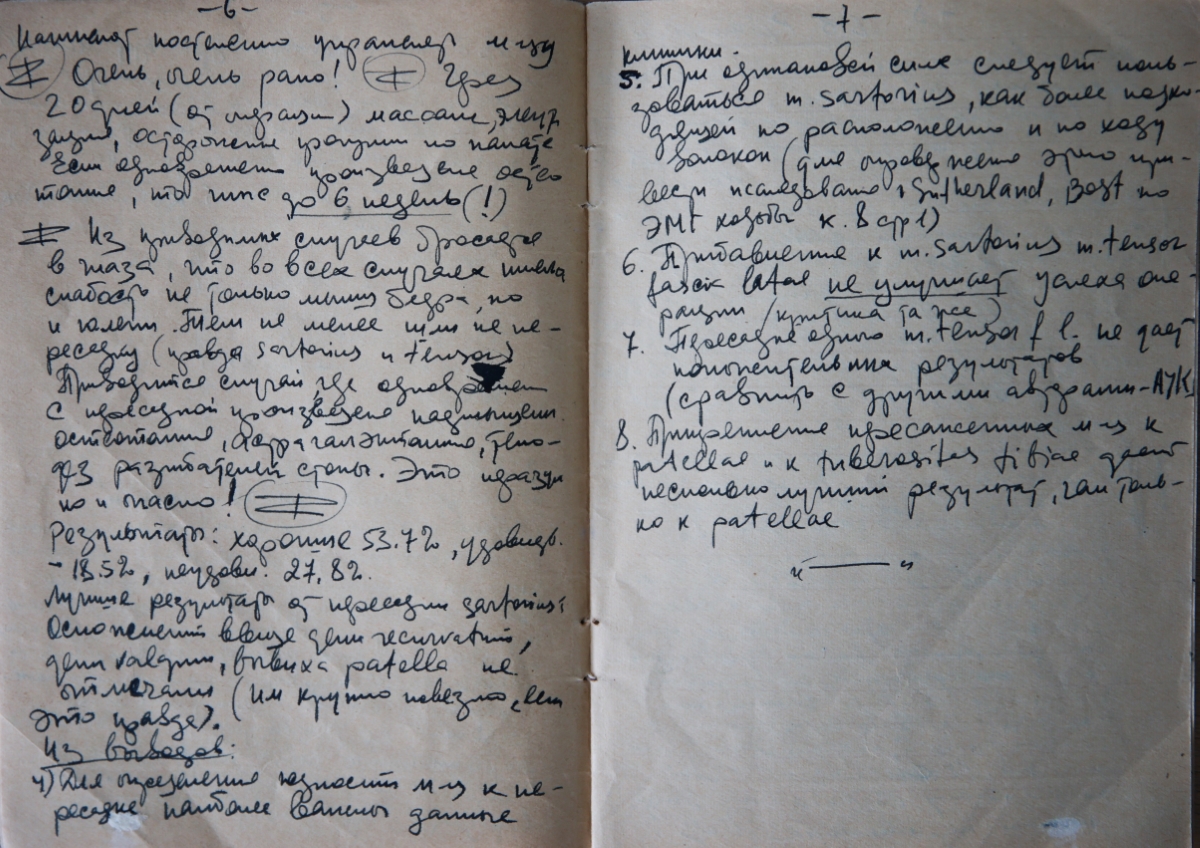 -6-
Начинает постепенно упражнять м-цу
Очень, очень рано! Через
20 дней (от операции) массаж,
осторожные по палате
Если одновременно произведена остео
томия, то гипс до 6 недель (!)
Из приводимых случаев бросается
в глаза, что во всех случаях имела
слабость не только мышц бедра, но
и голени. Тем не менее шли на пе-
ресадку (правда sartorius и tensor)
Приводится случай, где одновремен
с пересадкой произведена надмыщелк.
остеотомия, астрагалэктомия, тено-
дез разгибателей стопы. Это неразум
но и опасно!
Результаты: хорошие 53.7%, удовлетв.
- 18.5%, неудовл. 27,8%.
Лучшие результаты от пересадки sartorius:
Осложнений ввиде genu recurvatum,
genu valgum, вывиха patella не
отмечали (им крупно повезло, если
это правда).
Из выводов:
4) Для определения годности м-ц к пе-
ресадке наиболее важны данные
-7-
клиники.
5. При одинаковой силе следует поль-
зоваться m. sartorius, как более подхо-
дящей по расположению и по ходу
волокон (для опровержения этого при-
вести исследования Sutherland, Bost по
ЭМГ ходьбы к. 8 стр 1)
6. Прибавление к m. sartorius m. tensor
fascie latae не улучшает успеха опе-
рации (критика та же)
7. Пересадка одного m. tensor f. l. не дает
положительных результатов
(сравнить с другими авторами - АУК)
8. Прикрепление пересаженных м-ц к
patellae и к tuberositas tibiae дает
несколько лучший результат, чем толь-
ко к patellae